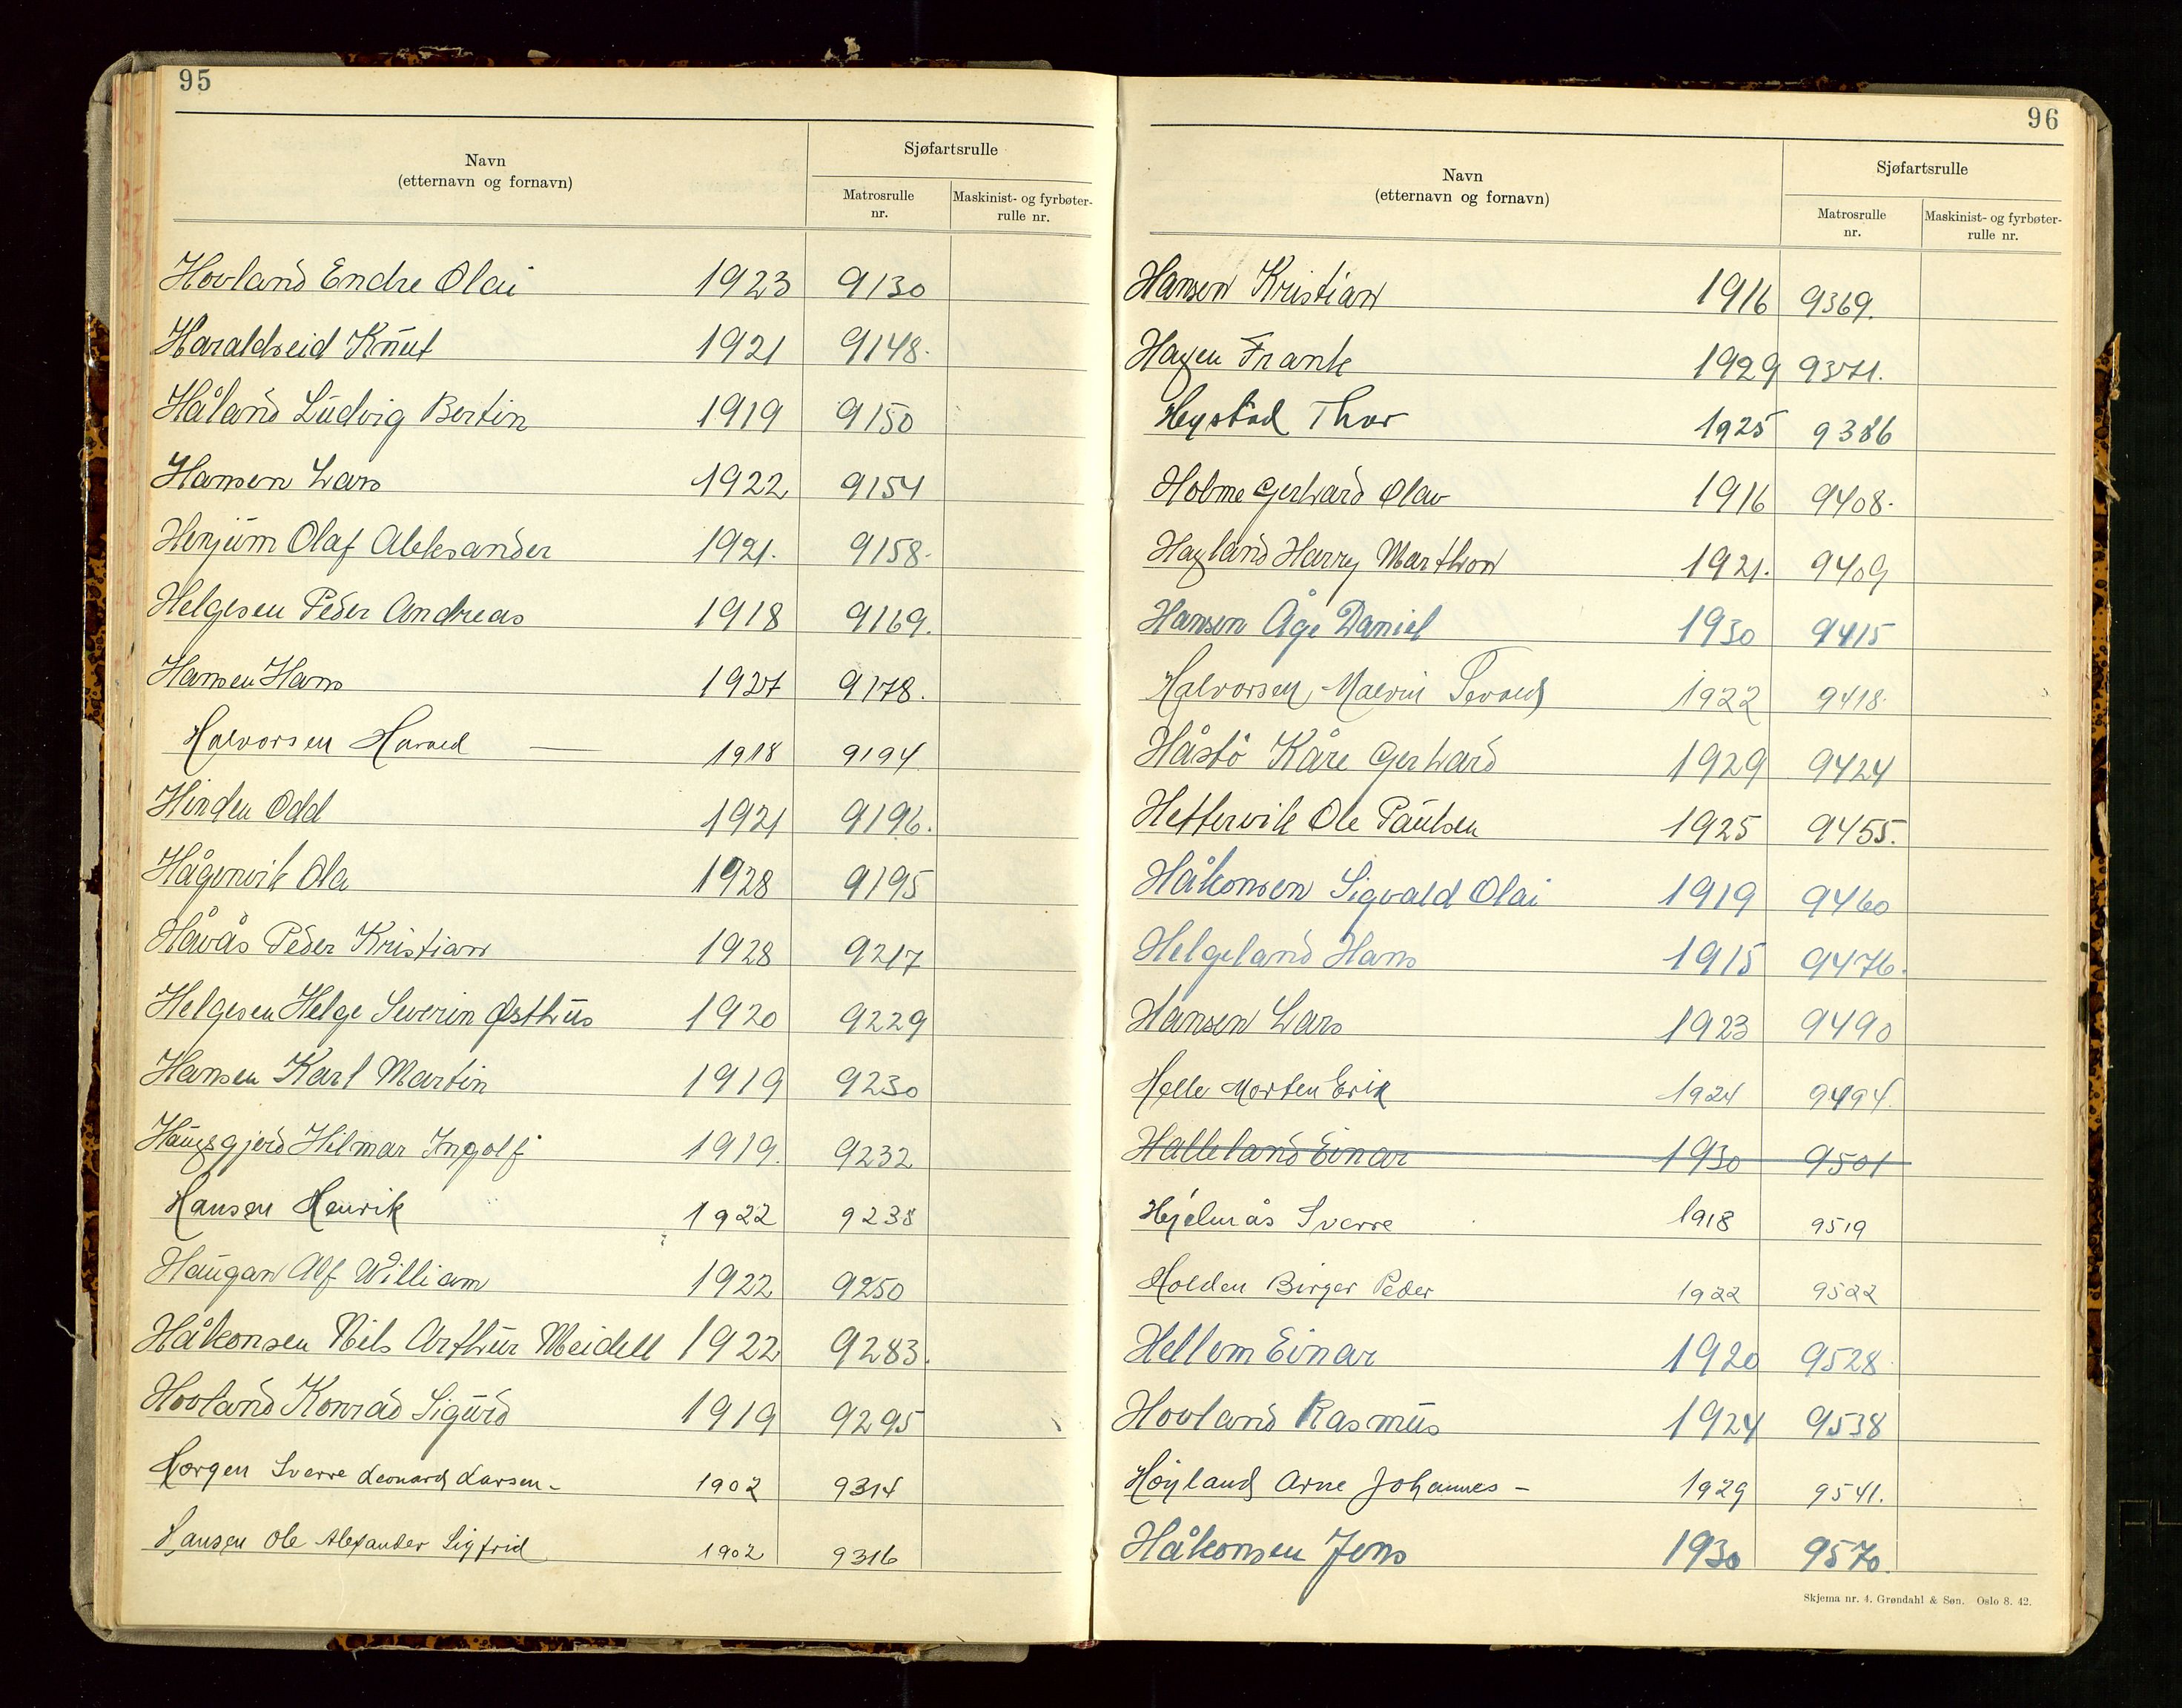 95
Navn
(etternavn og fornavn)
Sjøfartsrulle
Matrosrulle nr.
Maskinist- og fyrbøter-rulle nr.
Hovland Endre Olai 1923 9130
Haraldseid Knut 1921 9148.
Håland Ludvig Bertin 1919 9150
Hansen Lars 1922 9154
Henjum Olaf Aleksander 1921. 9158.
Helgesen Peder Andreas 1918 9169.
Hansen Hans 1927 9178.
Halvorsen Harald — 1918 9194
Hinden Odd 1921 9196.
Hågenvik Ola 1928 9195
Håvås Peder Kristian 1928 9217
Helgesen Helge Severin Østhus 1920 9229
Hansen Karl Martin 1919 9230
Haugsgjerd Hilmar Ingolf 1919. 9232
Hansen Henrik 1922 9238
Haugan Alf William 1922 9250
Håkonsen Nils Arthur Meidell 1922 9283.
Hovland Konrad Sigurd 1919 9295
Horgen Sverre Leonard Larsen - 1902 9314
Hansen Ole Alexander Sigfrid 1902 9316
96
Navn
(etternavn og fornavn)
Sjøfartsrulle
Matrosrulle nr.
Maskinist- og fyrbøter-rulle nr.
Hansen Kristian 1916 9369.
Hagen Frank 1929 9371.
Hegstad Thor 1925 9386
Holme Gerhard Olav 1916 9408.
Hagland Harry Marthon 1921. 9409
Hansen Åge Daniel 1930 9415
Halvorsen Malvin Sevald 1922 9418.
Håstø Kåre Gerhard 1929 9424
Hettervik Ole Paulsen 1925 9455.
Håkonsen Sigvald Olai 1919 9460
Helgeland Hans 1915 9476.
Hansen Lars 1923 9490
Helle Morten Erik 1924 9494.
Halleland Einar 1930 9501
Hjelmås Sverre 1918 9519
Holden Birger Peder 1922 9522
Hellem Einar 1920 9528
Hovland Rasmus 1924 9538
Høyland Arne Johannes - 1929 9541.
Håkonsen Jens 1930 9570.
Skjema nr. 4. Grøndahl & Søn. Oslo 8. 42.